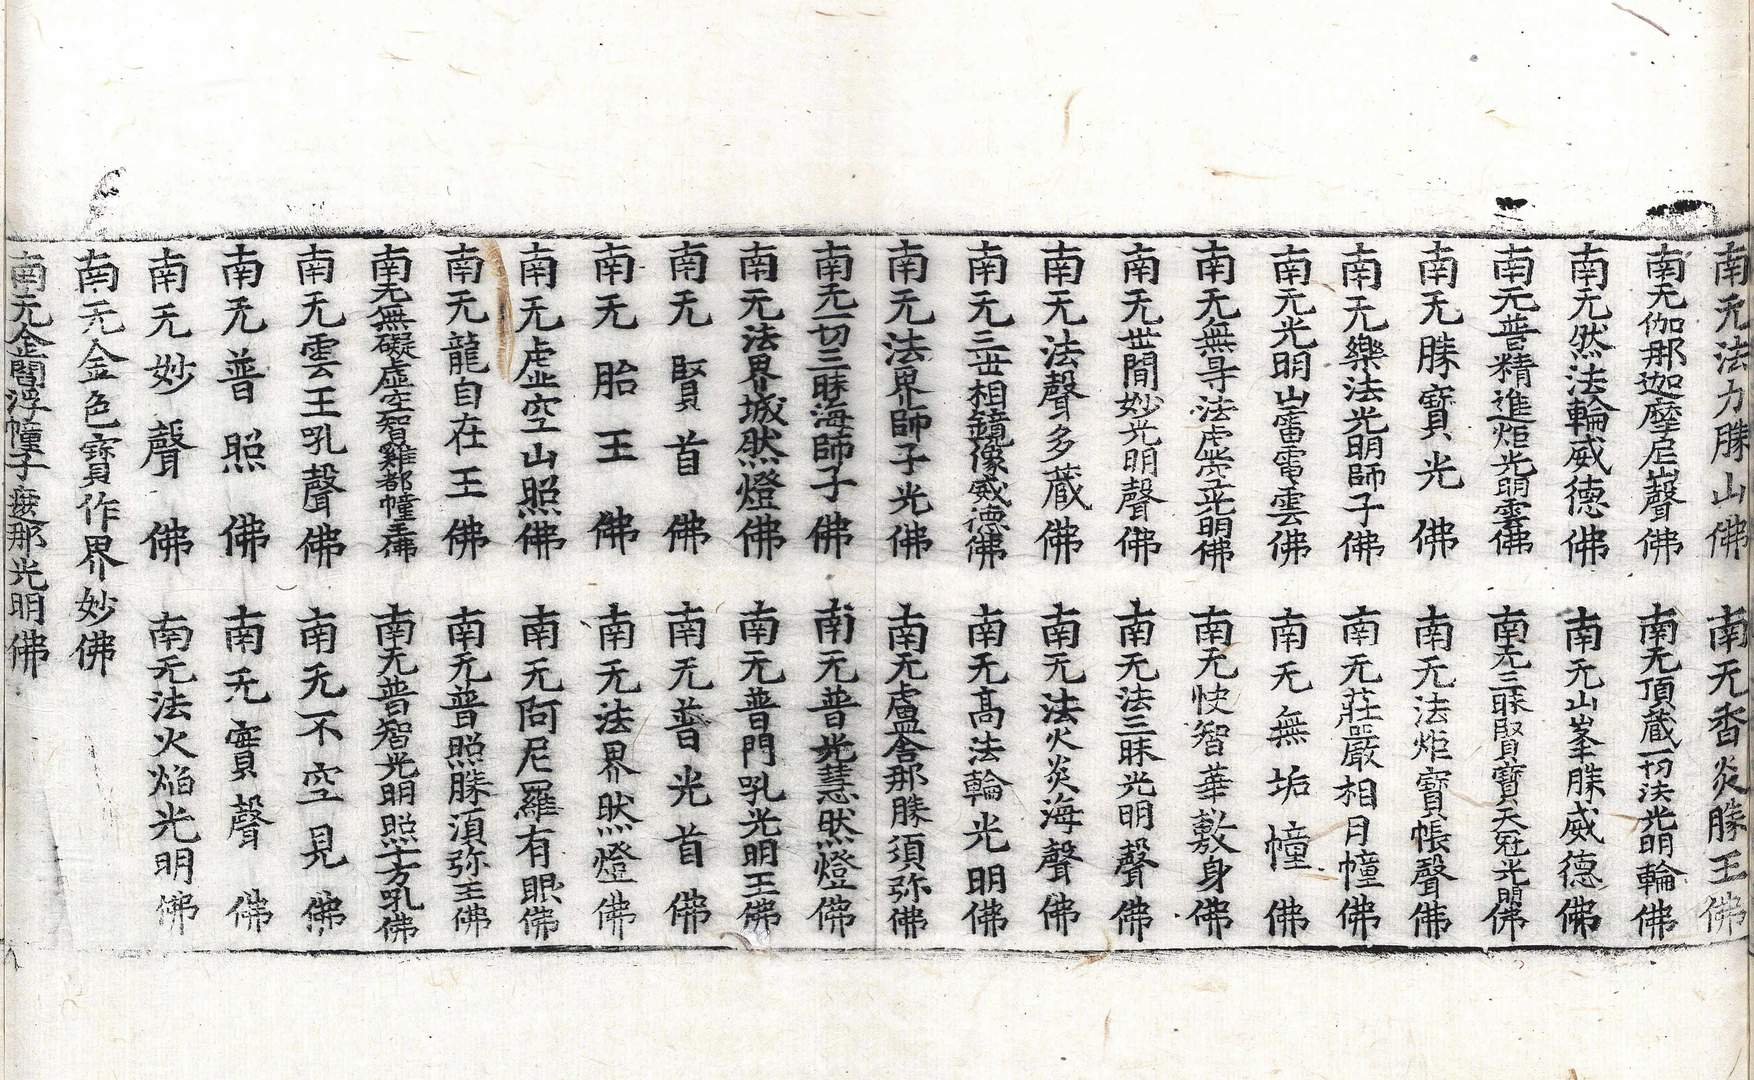 南无法力勝山佛　南无香炎勝王佛
南无伽那迦摩尼山聲佛　南无頂藏一切法光明輪佛
南无然法輪威德佛　南无山峯勝威德佛
南无普精進炬光明雲佛　南无三昧賢寶天冠光明佛
南无勝寶光佛　南无法炬寶帳聲佛
南无樂法光明師子佛　南无莊嚴相月幢佛
南无光明山雷電雲佛　南无無垢幢佛
南无無㝵法虛空光明佛　南无快智華敷身佛
南无世間妙光明聲佛　南无法三昧光明聲佛
南无法聲多藏佛　南无法火炎海聲佛
南无三世相鏡像威德佛　南无高法輪光明佛
南无法界師子光佛　南无盧舍那勝須弥佛
南无一切三昧海師子佛　南无普光慧然燈佛
南无法界城然燈佛　南无普門吼光明王佛
南无賢首佛　南无普光首佛
南无胎王佛　南无法界然燈佛
南无虛空山照佛　南无阿尼羅有眼佛
南无龍自在王佛　南无普照勝須弥王佛
南无無礙虛空智雞都幢王佛　南无普智光明照十方吼佛
南无雲王吼聲佛　南无不空見佛
南无普照佛　南无寶聲佛
南无妙聲佛　南无法火焰光明佛
南无金色寶作界妙佛
南无金閻浮幢子遮那光明佛